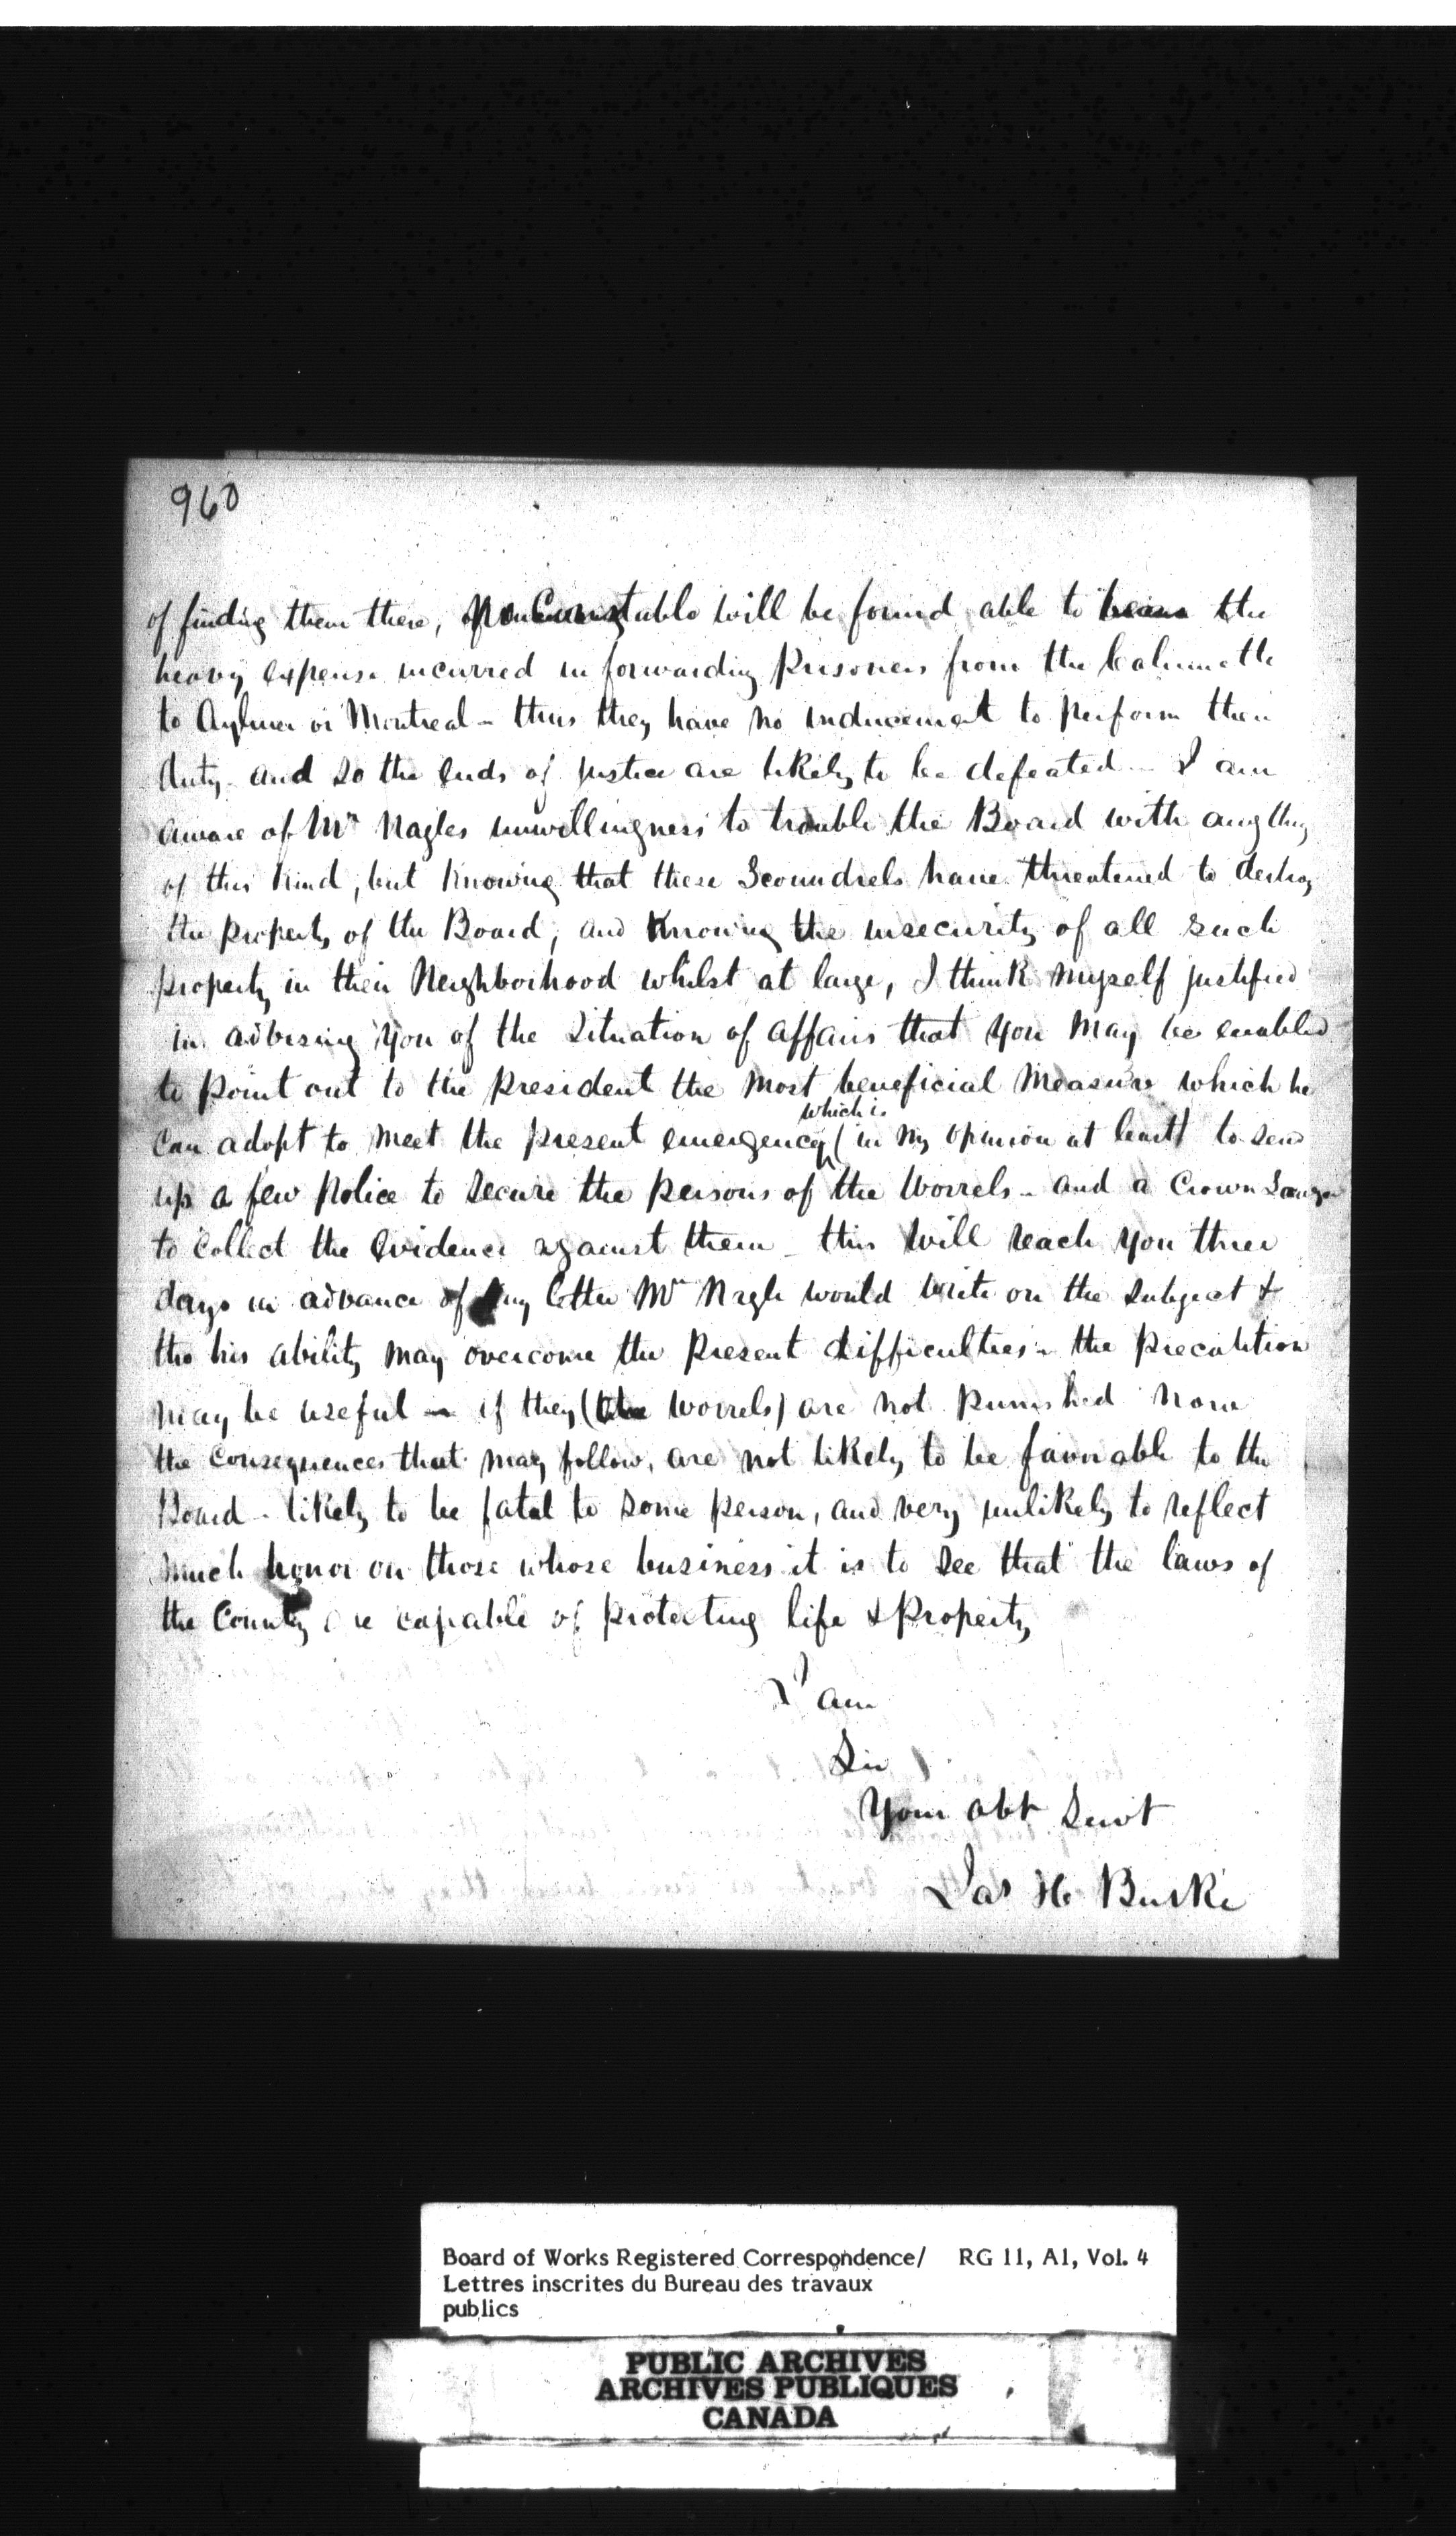 960
of finding them there, no Constable will be found able to bear the
heavy expense incurred in forwarding prisoners from the Calumette
to Aylmer or Montreal - thus they have no inducement to perform their
duty - and so the ends of justice are likely to be defeated - I am
aware of Mr Nagles unwillingness to trouble the Board with anything
of this kind, but knowing that these Scoundrels have threatened to destroy
the property of the Board, and knowing the insecurity of all such
property in their Neighborhood whilst at large, I think myself justified
in advising you of the Situation of affairs that you may be enabled
to point out to the president the most beneficial measure which he
which is
can adopt to meet the present emergency (in my opinion at least) to send
up a few police to secure the persons of the Worrels - and a Crown Lawyer
to collect the evidence against them - this will reach you three
days in advance of any letter Mr Nagle would write on the subject &
tho his ability may overcome the present difficulties - the precaution
may be useful - if they (the Worrels) are not punished now
the consequences that may follow, are not likely to be favorable to the
Board - likely to be fatal to some person, and very unlikely to reflect
much honor on those whose business it is to see that the laws of
the County are capable of protecting life & property
I am
Sir
Your obt Servt
Jas H Burke
Board of Works Registered Correspondence/ RG 11, A1, Vol. 4
Lettres inscrites du Bureau des travaux
publics
PUBLIC ARCHIVES
ARCHIVES PUBLIQUES
CANADA